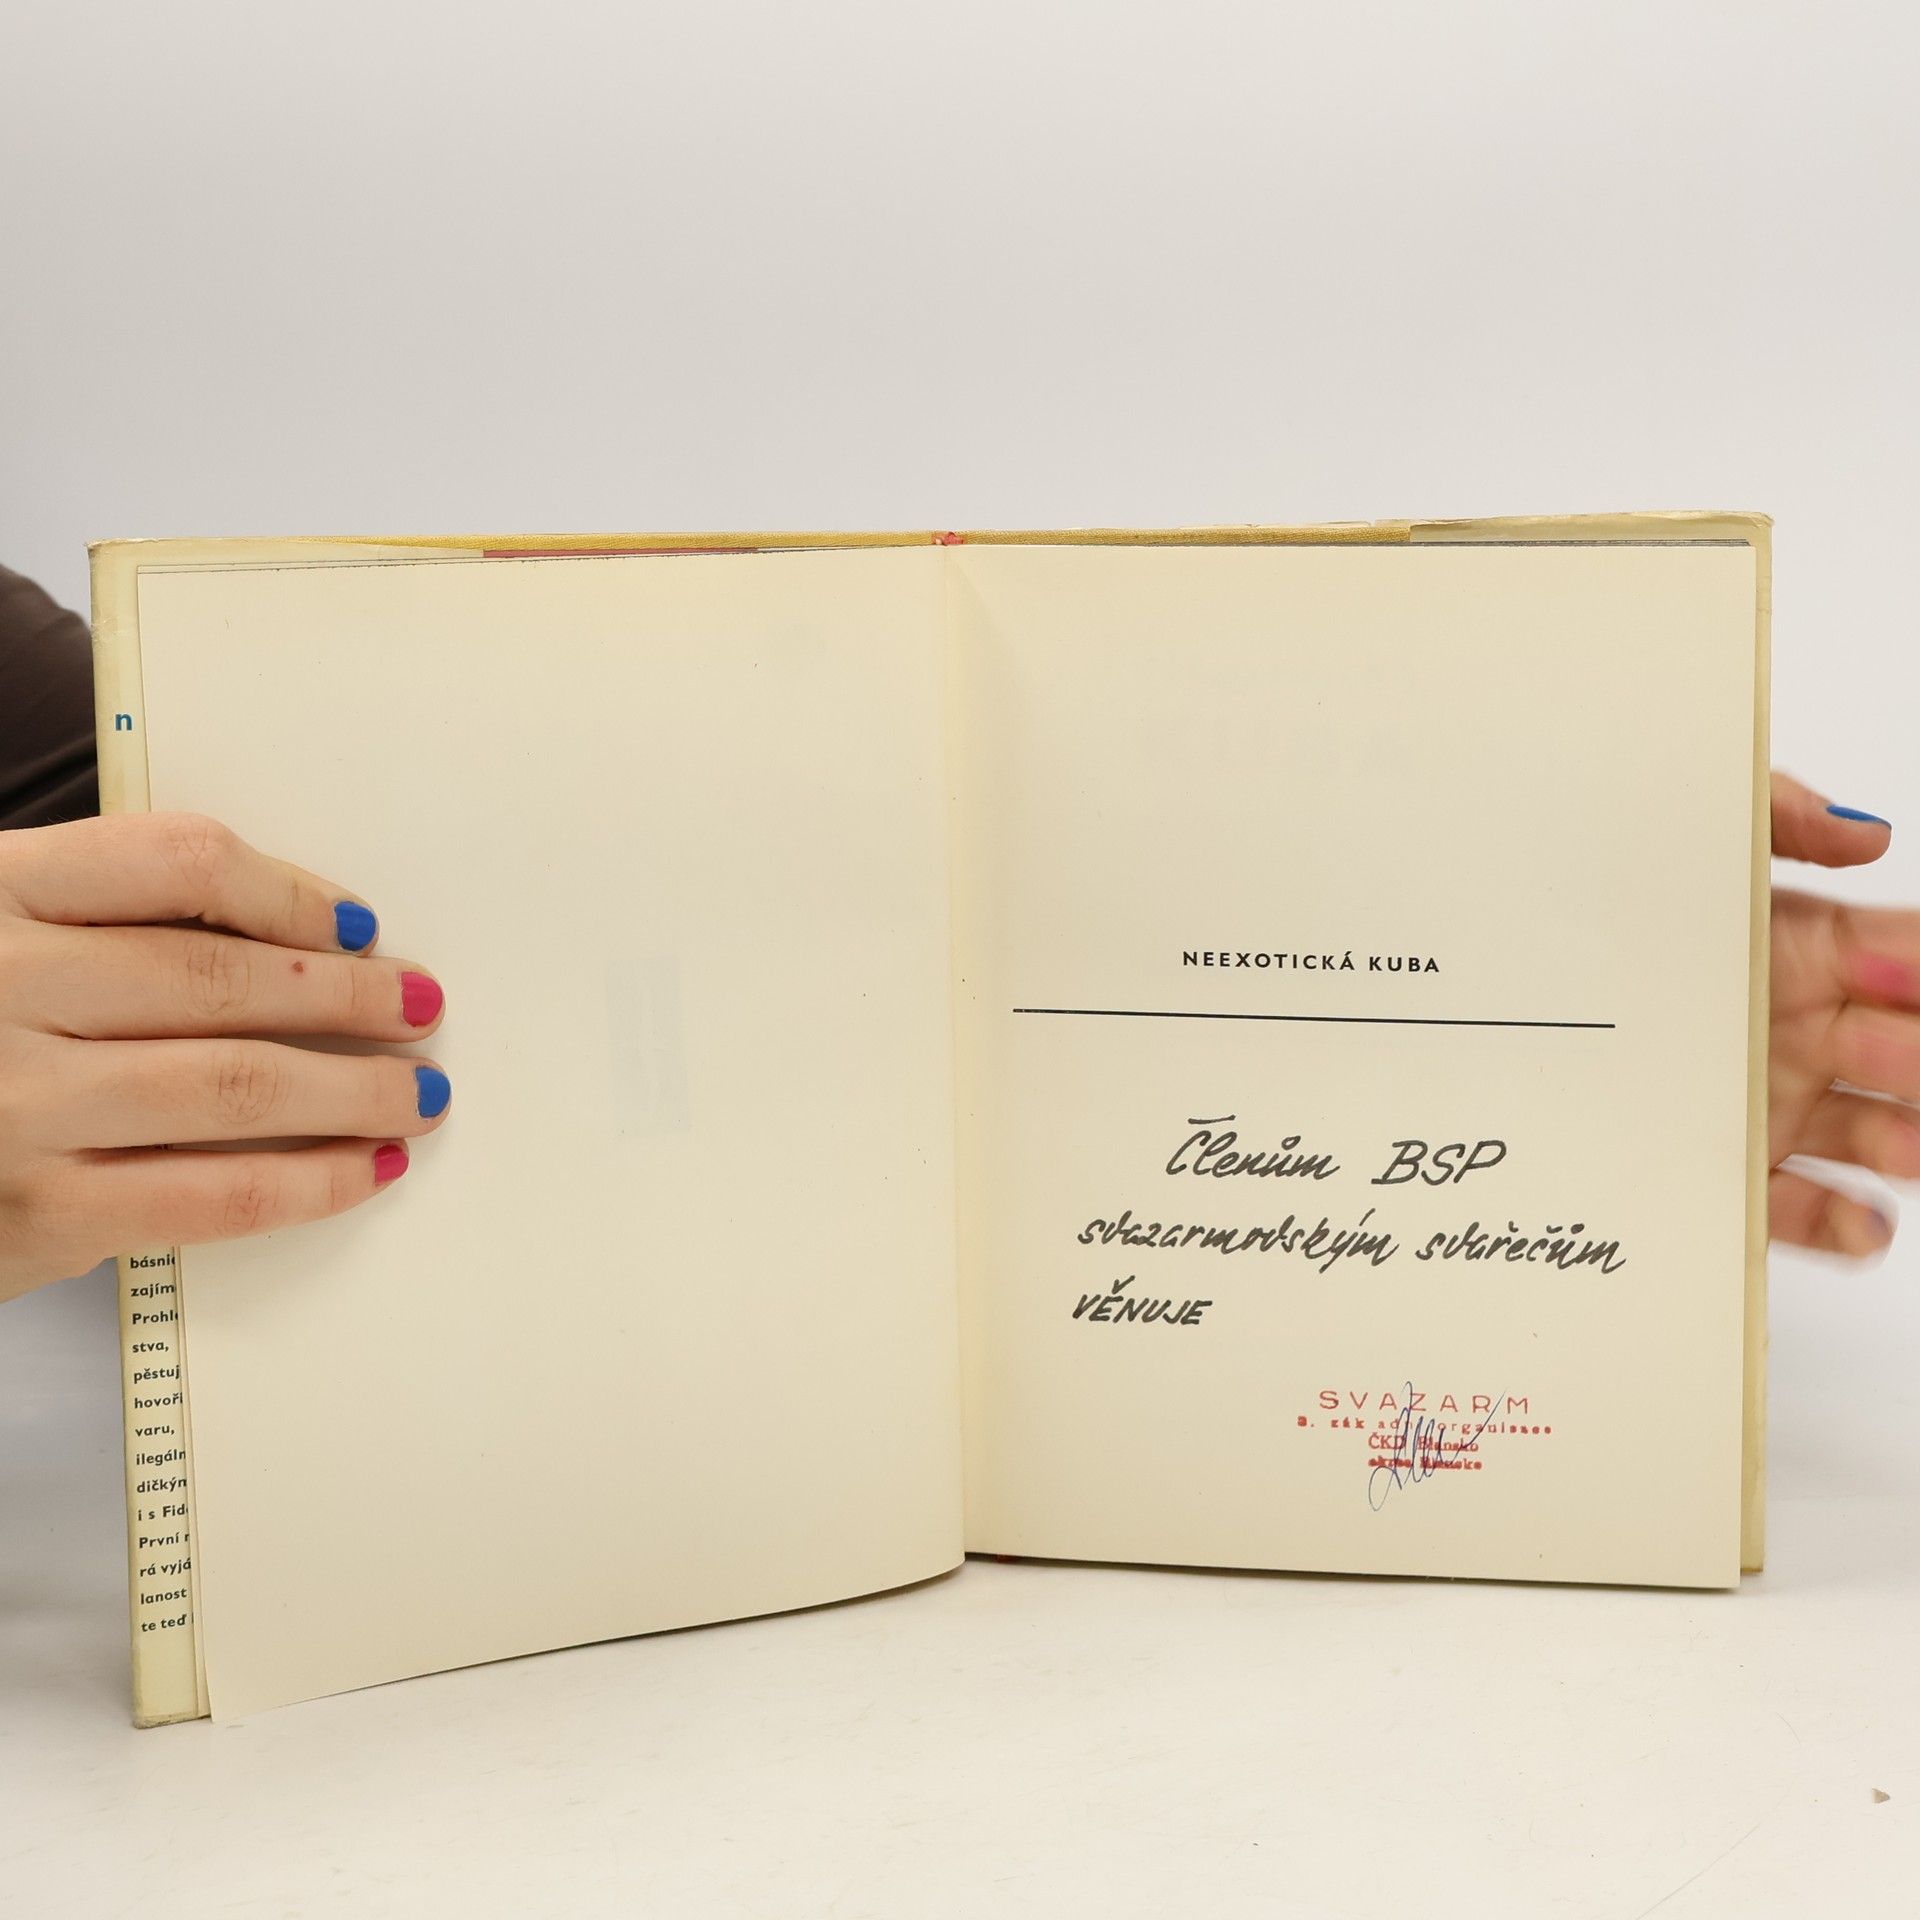 n
básni
zajím
Prohl
stva,
pěstuj
hovoř
varu,
ilegáln
dičkýn
i s Fid
První
rá vyjá
lanost
te teď
NEEXOTICKÁ KUBA
Členům BSP
svazarmovským svářečům
VĚNUJE
SVAZARM
3. zák adn organisace
ČKD Blansko
okres Blansko